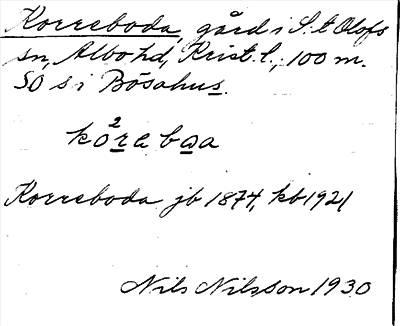 Korreboda, gård i S:t Olofs
sn, Albo hd, Krist. l., 100 m.
SO s i Bösahus.
ko²rebωa
Korreboda jb 1874, kb 1921
Nils Nilsson 1930